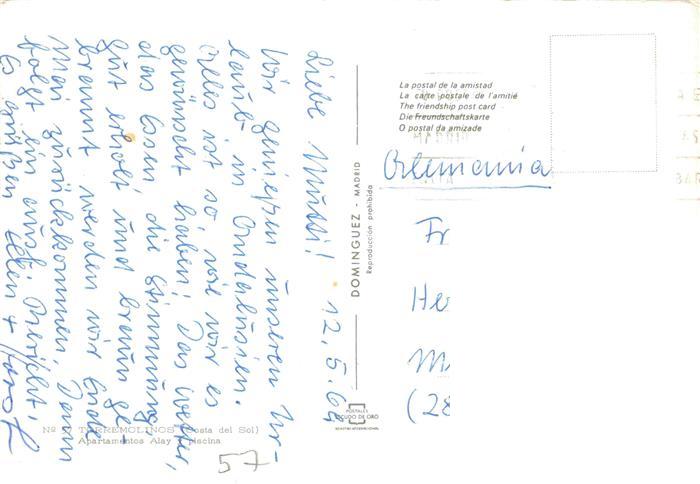 Liebe Mutti! 12.5.64
Wir genießen unseren Ur-
laub in Andalusien.
Alles ist so, wie wir es
gewünscht haben! Das Wetter,
das Essen, die Stimmung.
Gut erholt und braun ge-
brannt werden wir Ende
Mai zurückkommen. Dann
folgt ein ausf. Bericht.
Es grüßen
La postal de la amistad
La carte postale de l'amitié
The friendship post card
Die Freundschaftskarte
O postal da amizade
Alemania
Fr
He
M
(28
DOMINGUEZ - MADRID
Reproducción prohibida
POSTALES
ESCUDO DE ORO
Nº 57 TORREMOLINOS (Costa del Sol)
Apartamentos Alay y piscina
57